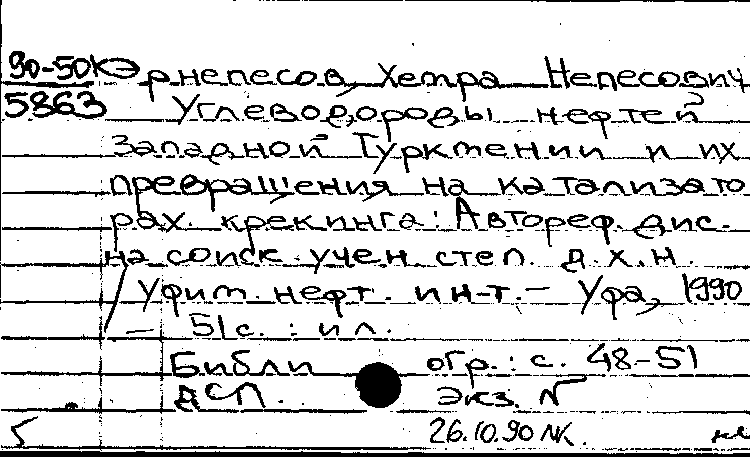 90-50к Эрнепесов, Хетра Непесович
5863 Углеводороды нефтей
Западной Туркмении и их
превращения на катализато
рах крекинга: Автореф. дис.
на соиск. учен. степ. д.х.н.
/ Уфим. нефт. ин-т. – Уфа, 1990
– 51с. : ил.
Библиогр.: с. 48-51
ДСП. Экз. N
5 26.10.90 NK.